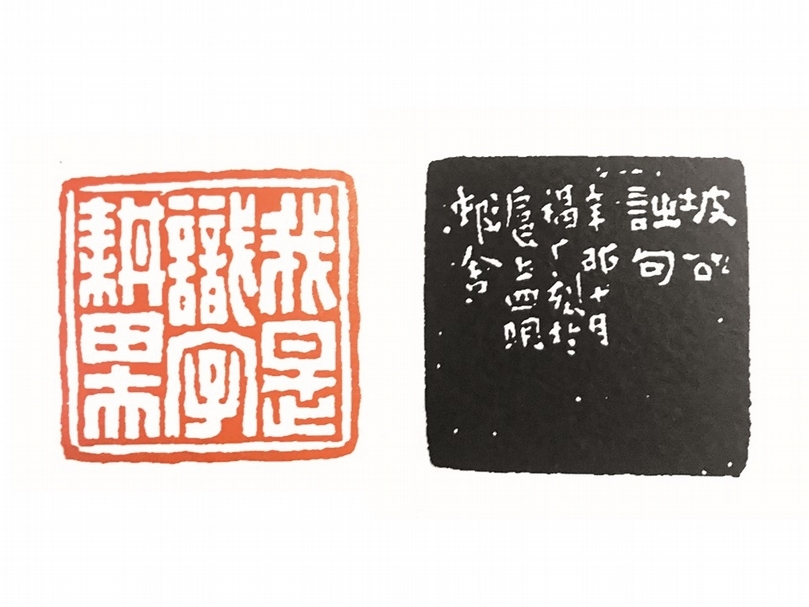 我是
識字
耕田夫
坡公
詩句
辛卯十月
刻於
滬上四明
邨舍